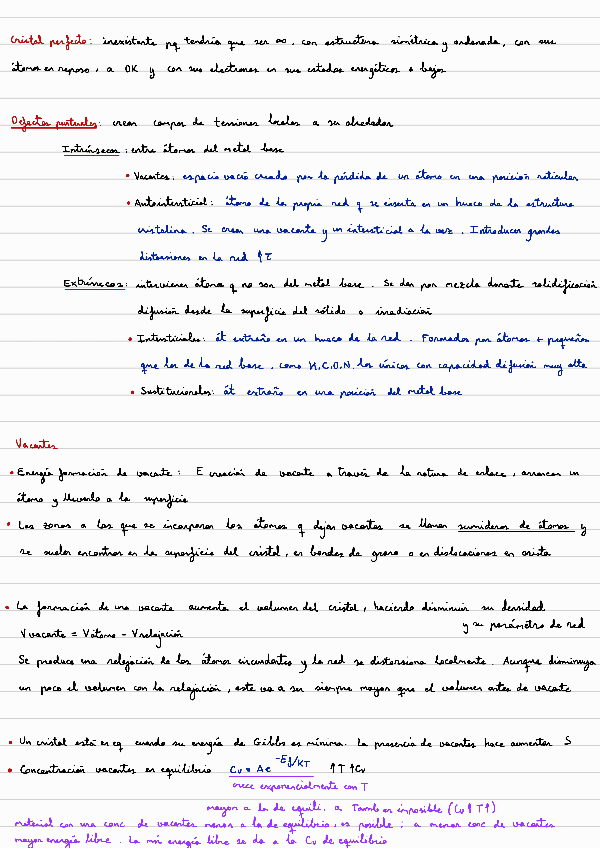 Cristal perfecto: inexistente pq tendría que ser ∞, con estructura simétrica y ordenada, con sus
átomos en reposo, a 0K y con sus electrones en sus estados energéticos + bajos
Defectos puntuales: crean campos de tensiones locales a su alrededor
Intrínsecos: entre átomos del metal base
• Vacantes: espacio vacío creado por la pérdida de un átomo en una posición reticular
• Autointersticial: átomo de la propia red q se inserta en un hueco de la estructura
cristalina. Se crean una vacante y un intersticial a la vez. Introducen grandes
distorsiones en la red ↑τ
Extrínsecos: intervienen átomos q no son del metal base. Se dan por mezcla durante solidificación
difusión desde la superficie del sólido o irradiación
• Intersticiales: át extraño en un hueco de la red. Formados por átomos + pequeños
que los de la red base, como H,C,O,N. los únicos con capacidad difusión muy alta
• Sustitucionales: át extraño en una posición del metal base
Vacantes
• Energía formación de vacante: E creación de vacante a través de la rotura de enlace, arrancar un
átomo y llevarlo a la superficie
• Las zonas a las que se incorporan los átomos q dejan vacantes se llaman sumideros de átomos y
se suelen encontrar en la superficie del cristal, en bordes de grano o en dislocaciones en arista
• La formación de una vacante aumenta el volumen del cristal, haciendo disminuir su densidad
y su parámetro de red
Vvacante = Vátomo - Vrelajación
Se produce una relajación de los átomos circundantes y la red se distorsiona localmente. Aunque disminuya
un poco el volumen con la relajación, este va a ser siempre mayor que el volumen antes de vacante
• Un cristal está en eq cuando su energía de Gibbs es mínima. La presencia de vacantes hace aumentar S
• Concentración vacantes en equilibrio Cv = Ae^-Ef/KT ↑T ↑Cv
crece exponencialmente con T
mayor a la de equili. a Tamb es imposible (Cv↑ T↑)
material con una conc de vacantes menor a la de equilibrio, es posible; a menor conc de vacantes
mayor energía libre. La mín energía libre se da a la Cv de equilibrio